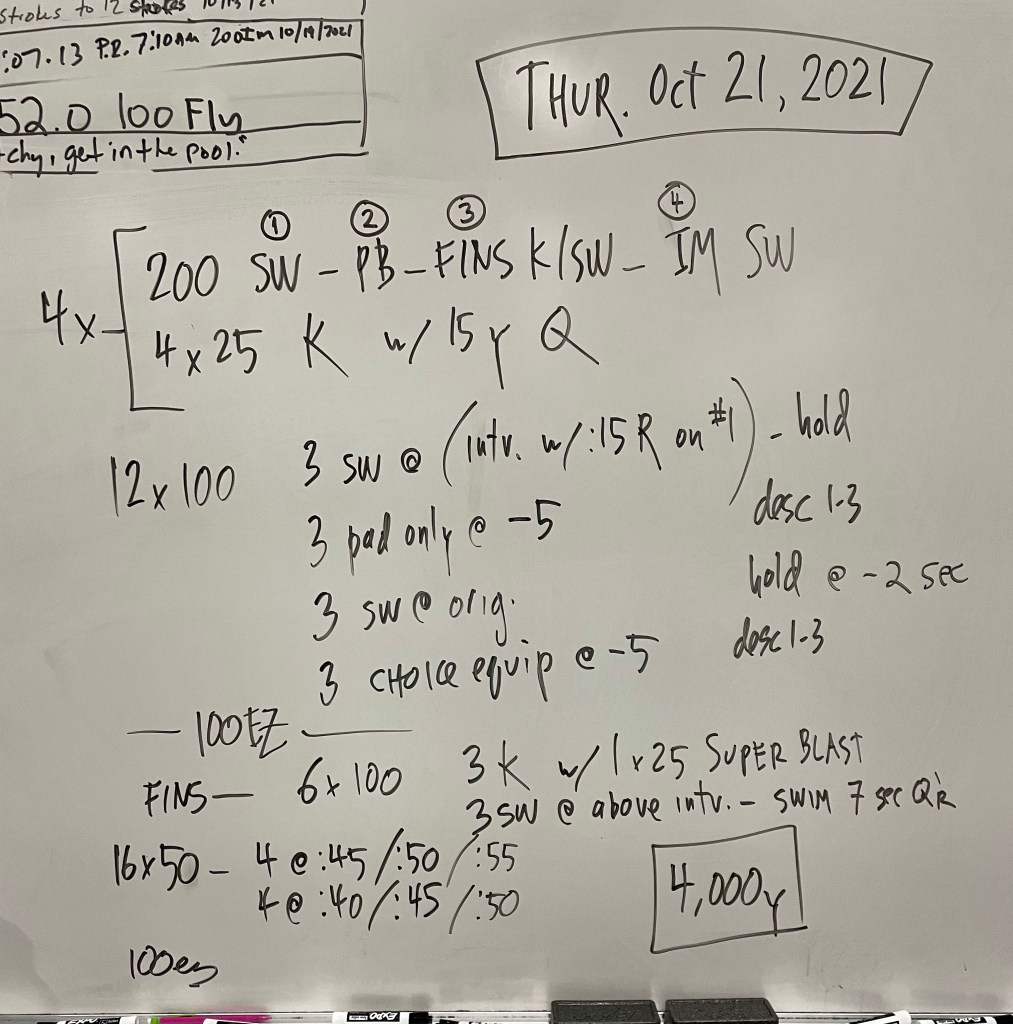 strokes to 12 strokes 10/13/21
:07.13 P.R. 7:10am 200Im 10/19/2021
52.0 100 Fly
chy, get in the pool."
THUR. Oct 21, 2021
① ② ③ ④
4x 200 SW - PB - FINS K/SW - IM SW
4x25 K w/ 15y Q
12x100 3 sw @ (intv. w/ :15 R on #1) - hold
3 pad only @ -5 desc 1-3
3 sw @ orig. hold @ -2 sec
3 CHOICE equip @ -5 desc 1-3
— 100 EZ —
FINS — 6x100 3 K w/ 1x25 SUPER BLAST
3 SW @ above intv. - SWIM 7 sec QR
16x50 - 4 @ :45/:50/:55
4 @ :40/:45/:50
4,000y
100ez
EXPO